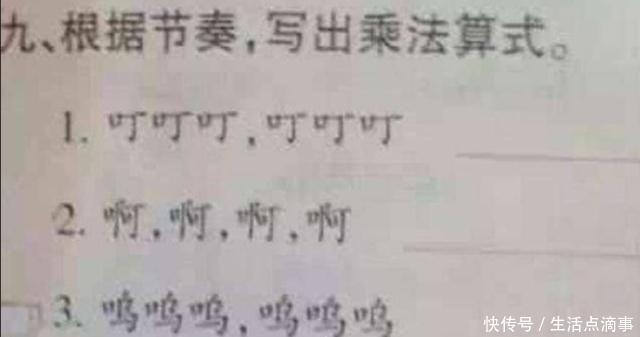 九、根据节奏,写出乘法算式。
1. 叮叮叮,叮叮叮
2. 啊,啊,啊,啊
3. 呜呜呜,呜呜呜
快传号/生活点滴事